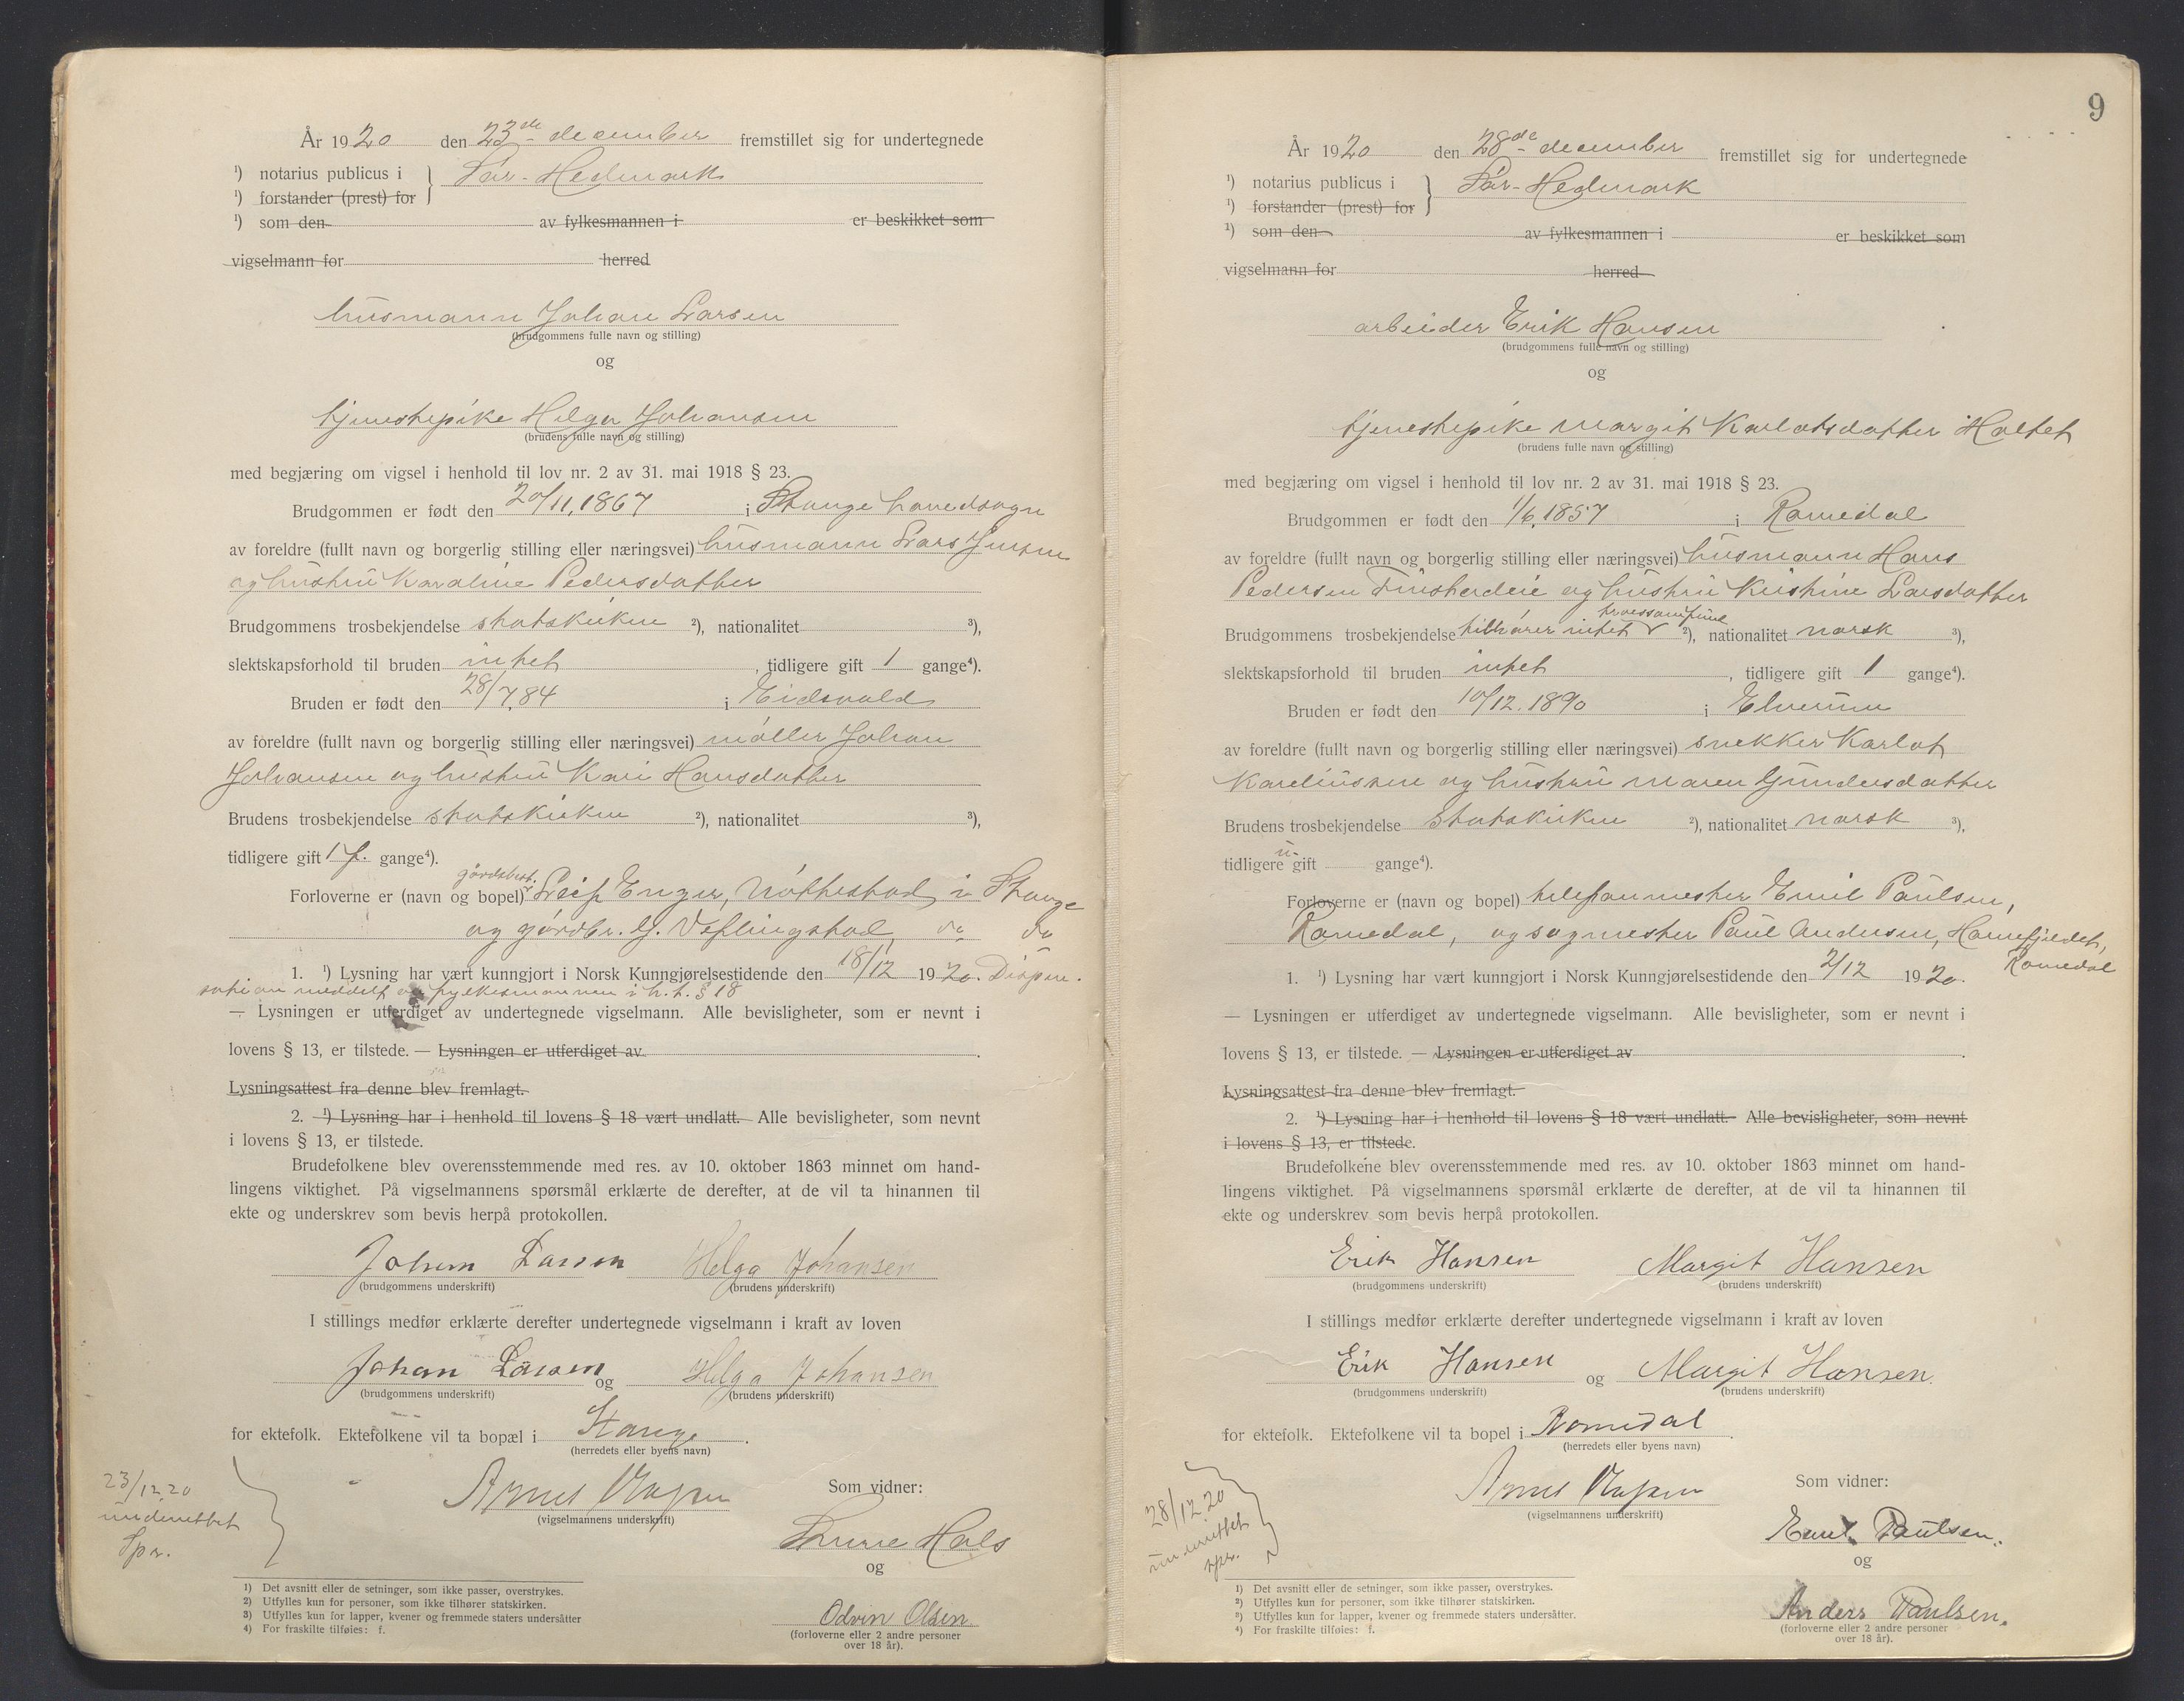 År 1920 den 23de december fremstillet sig for undertegnede
¹) notarius publicus i } Sør-Hedmark
¹) forstander (prest) for
¹) som den av fylkesmannen i er beskikket som
vigselmann for herred
husmann Johan Larsen
(brudgommens fulle navn og stilling)
og
tjenestepike Helga Johansen
(brudens fulle navn og stilling)
med begjæring om vigsel i henhold til lov nr. 2 av 31. mai 1918 § 23.
Brudgommen er født den 20/11.1867 i Stange hovedsogn
av foreldre (fullt navn og borgerlig stilling eller næringsvei) husmann Lars Jensen
og hustru Karoline Pedersdatter
Brudgommens trosbekjendelse statskirken ²), nationalitet ³),
slektskapsforhold til bruden intet, tidligere gift 1 gange⁴).
Bruden er født den 28/7.84 i Eidsvold
av foreldre (fullt navn og borgerlig stilling eller næringsvei) møller Johan
Johansen og hustru Kari Hansdatter
Brudens trosbekjendelse statskirken ²), nationalitet ³),
tidligere gift 1 f. gange⁴).
gårdsbest.
Forloverne er (navn og bopel) Leif Enger, Nøttestad i Stange
og gårdbr. G. Veflingstad do do
1. ¹) Lysning har vært kunngjort i Norsk Kunngjørelsestidende den 18/12 1920. Dispen-
sation meddelt av fylkesmannen i h.t. § 18
— Lysningen er utferdiget av undertegnede vigselmann. Alle bevisligheter, som er nevnt i
lovens § 13, er tilstede. — Lysningen er utferdiget av
Lysningsattest fra denne blev fremlagt.
2. ¹) Lysning har i henhold til lovens § 18 vært undlatt. Alle bevisligheter, som nevnt
i lovens § 13, er tilstede.
Brudefolkene blev overensstemmende med res. av 10. oktober 1863 minnet om hand-
lingens viktighet. På vigselmannens spørsmål erklærte de derefter, at de vil ta hinannen til
ekte og underskrev som bevis herpå protokollen.
Johan Larsen Helga Johansen
(brudgommens underskrift) (brudens underskrift)
I stillings medfør erklærte derefter undertegnede vigselmann i kraft av loven
Johan Larsen og Helga Johansen
(brudgommens underskrift) (brudens underskrift)
for ektefolk. Ektefolkene vil ta bopæl i Stange.
(herredets eller byens navn)
23/12.20
underrettet
Spr.
Som vidner:
(vigselmannens underskrift)
Hals
og
Odvin Olsen
(forloverne eller 2 andre personer
over 18 år).
1) Det avsnitt eller de setninger, som ikke passer, overstrykes.
2) Utfylles kun for personer, som ikke tilhører statskirken.
3) Utfylles kun for lapper, kvener og fremmede staters undersåtter
4) For fraskilte tilføies: f.
9
År 1920 den 28de december fremstillet sig for undertegnede
¹) notarius publicus i } Sør-Hedmark
¹) forstander (prest) for
¹) som den av fylkesmannen i er beskikket som
vigselmann for herred
arbeider Erik Hansen
(brudgommens fulle navn og stilling)
og
tjenestepike Margit Karlotsdatter Holtet
(brudens fulle navn og stilling)
med begjæring om vigsel i henhold til lov nr. 2 av 31. mai 1918 § 23.
Brudgommen er født den 1/6.1857 i Romedal
av foreldre (fullt navn og borgerlig stilling eller næringsvei) husmann Hans
Pedersen Finstadeie og hustru Kristine Larsdatter
trossamfund
Brudgommens trosbekjendelse tilhører intet ²), nationalitet norsk ³),
slektskapsforhold til bruden intet, tidligere gift 1 gange⁴).
Bruden er født den 10/12.1890 i Elverum
av foreldre (fullt navn og borgerlig stilling eller næringsvei) snekker Karlot
Kareliussen og hustru Maren Gundersdatter
Brudens trosbekjendelse Statskirken ²), nationalitet norsk ³),
tidligere u-gift gange⁴).
Forloverne er (navn og bopel) telefonmester Emil Paulsen,
Romedal, og sagmester Paul Andersen, Hornefjeldet,
Romedal
1. ¹) Lysning har vært kunngjort i Norsk Kunngjørelsestidende den 2/12 1920.
— Lysningen er utferdiget av undertegnede vigselmann. Alle bevisligheter, som er nevnt i
lovens § 13, er tilstede. — Lysningen er utferdiget av
Lysningsattest fra denne blev fremlagt.
2. ¹) Lysning har i henhold til lovens § 18 vært undlatt. Alle bevisligheter, som nevnt
i lovens § 13, er tilstede.
Brudefolkene blev overensstemmende med res. av 10. oktober 1863 minnet om hand-
lingens viktighet. På vigselmannens spørsmål erklærte de derefter, at de vil ta hinannen til
ekte og underskrev som bevis herpå protokollen.
Erik Hansen Margit Hansen
(brudgommens underskrift) (brudens underskrift)
I stillings medfør erklærte derefter undertegnede vigselmann i kraft av loven
Erik Hansen og Margit Hansen.
(brudgommens underskrift) (brudens underskrift)
for ektefolk. Ektefolkene vil ta bopel i Romedal.
(herredets eller byens navn)
28/12.20
underrettet
spr.
Som vidner:
(vigselmannens underskrift)
Emil Paulsen.
og
Anders Paulsen.
(forloverne eller 2 andre personer
over 18 år).
1) Det avsnitt eller de setninger, som ikke passer, overstrykes.
2) Utfylles kun for personer, som ikke tilhører statskirken.
3) Utfylles kun for lapper, kvener og fremmede staters undersåtter.
4) For fraskilte tilføies: f.